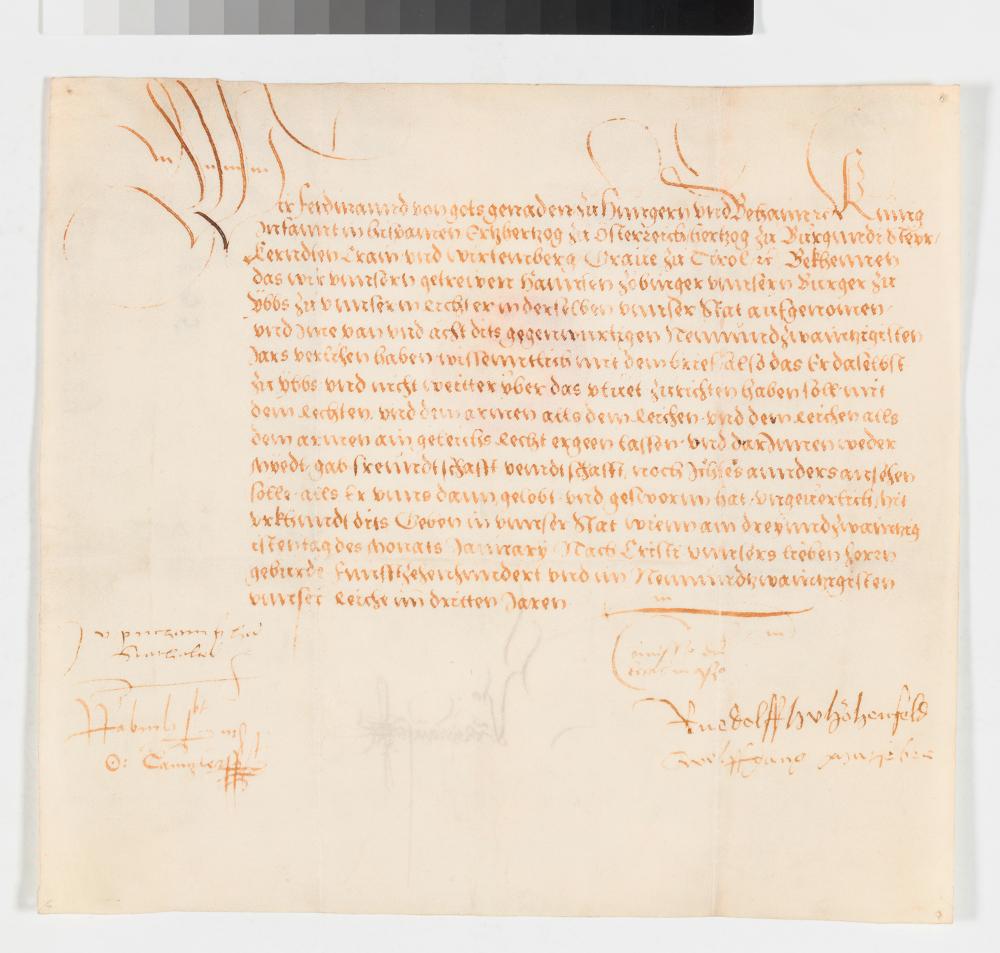 Wir Ferdinannd von gots genaden zu Hungern vnd Behaim rc Kunig
Infannt in Hispanien Ertzhertzog zu Osterreich hertzog zu Burgundi Steyr
Kernndten Crain vnd Wirtemberg Graue zu Tirol rc Bekhennen
das wir vnnsern getrewen Hannsen burger vnnsern Burger zu
Ybbs zu vnnserm Richter in derselben vnnser Stat aufgenomen
vnd Ime pan vnd acht dits gegenwurtigen Neunundzwaintzigisten
Jars verlihen haben wissenntlich mit dem brief also das Er daselbst
zu Ybbs vnd nicht weitter vber das pluet zurichten haben soll mit
dem Rechten vnd dem armen alls dem Reichen vnd dem Reichen alls
dem armen ain geleichs Recht ergeen lassen vnd darInnen weder
Miedt gab freundtschafft veindtschafft noch Ichtes annders ansehen
solle alls Er vnns dann gelobt vnd gesworn hat vngeuerlich Mit
vrkhundt dits Geben in vnnser Stat Wienn am dreyundzwaintzig
isten tag des Monats January Nach Cristi vnnsers lieben herrn
geburde Funfftzehenhundert vnd im Neunundtzwaintzigisten
vnnser Reiche im dritten Jaren
Stathalter
Cantzler
Ruedolff h v Hohenfeld
Wolffgang